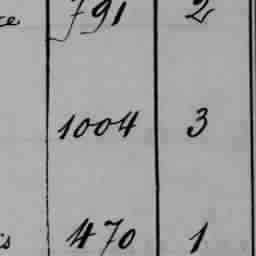 791 2
1004 3
470 1